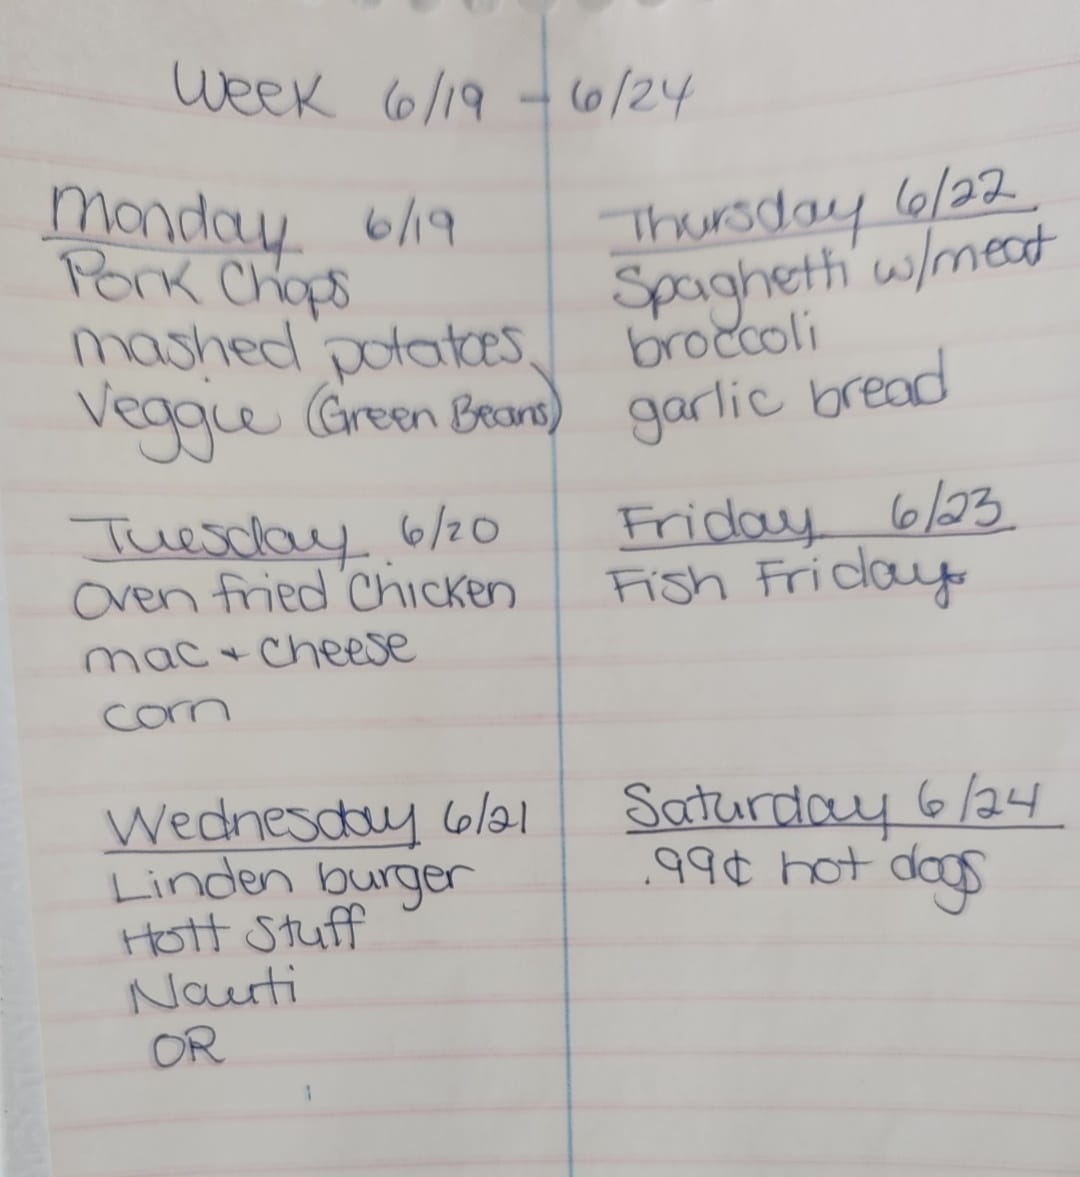 Week 6/19 - 6/24
Monday 6/19
Pork Chops
mashed potatoes
Veggie (Green Beans)
Tuesday 6/20
Oven fried Chicken
mac + cheese
corn
Wednesday 6/21
Linden burger
Hott Stuff
Nauti
OR
Thursday 6/22
Spaghetti w/meat
broccoli
garlic bread
Friday 6/23
Fish Friday
Saturday 6/24
.99¢ hot dogs